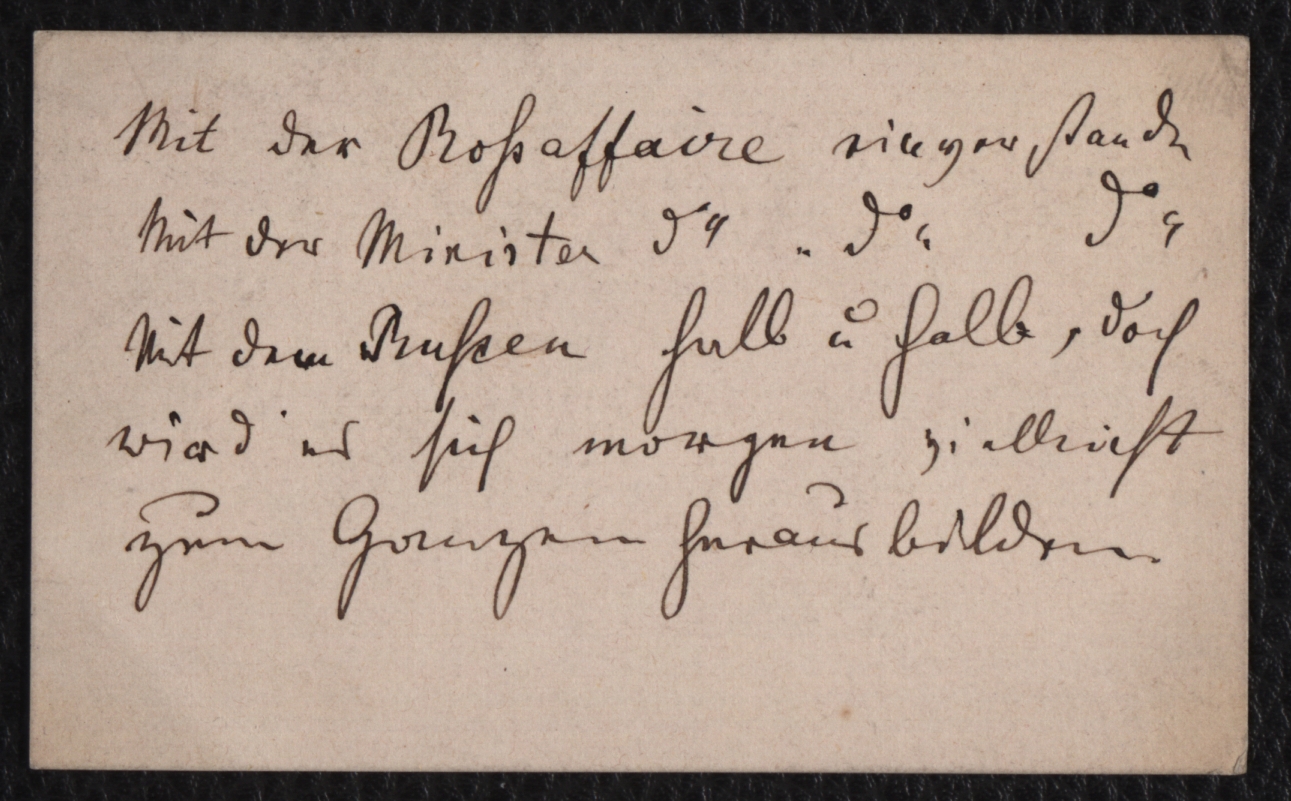 Mit der Roßaffaire einverstanden
Mit der Minister do „ do „ do „
Mit dem Rußen halb u halb, doch
wird es sich morgen vielleicht
zum Ganzen herausbilden.